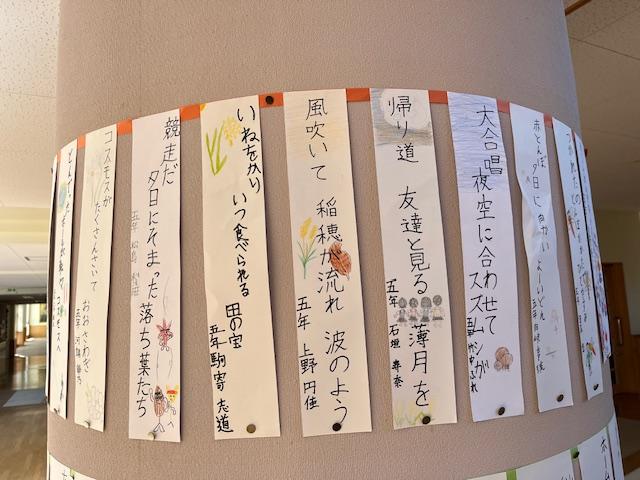 赤とんぼ
夕日に向かい
よーいどん
五年
大合唱
夜空に合わせて
スズムシが
五年
帰り道
友達と見る
薄月を
五年 石垣
風吹いて
稲穂が流れ
波のよう
五年 上野 円佳
いねをかり
いつ食べられる
田の宝
五年 駒寄 志道
競走だ
夕日にそまった
落ち葉たち
五年 松島
コスモスが
たくさんさいて
おおさわぎ
五年
コスモスへ